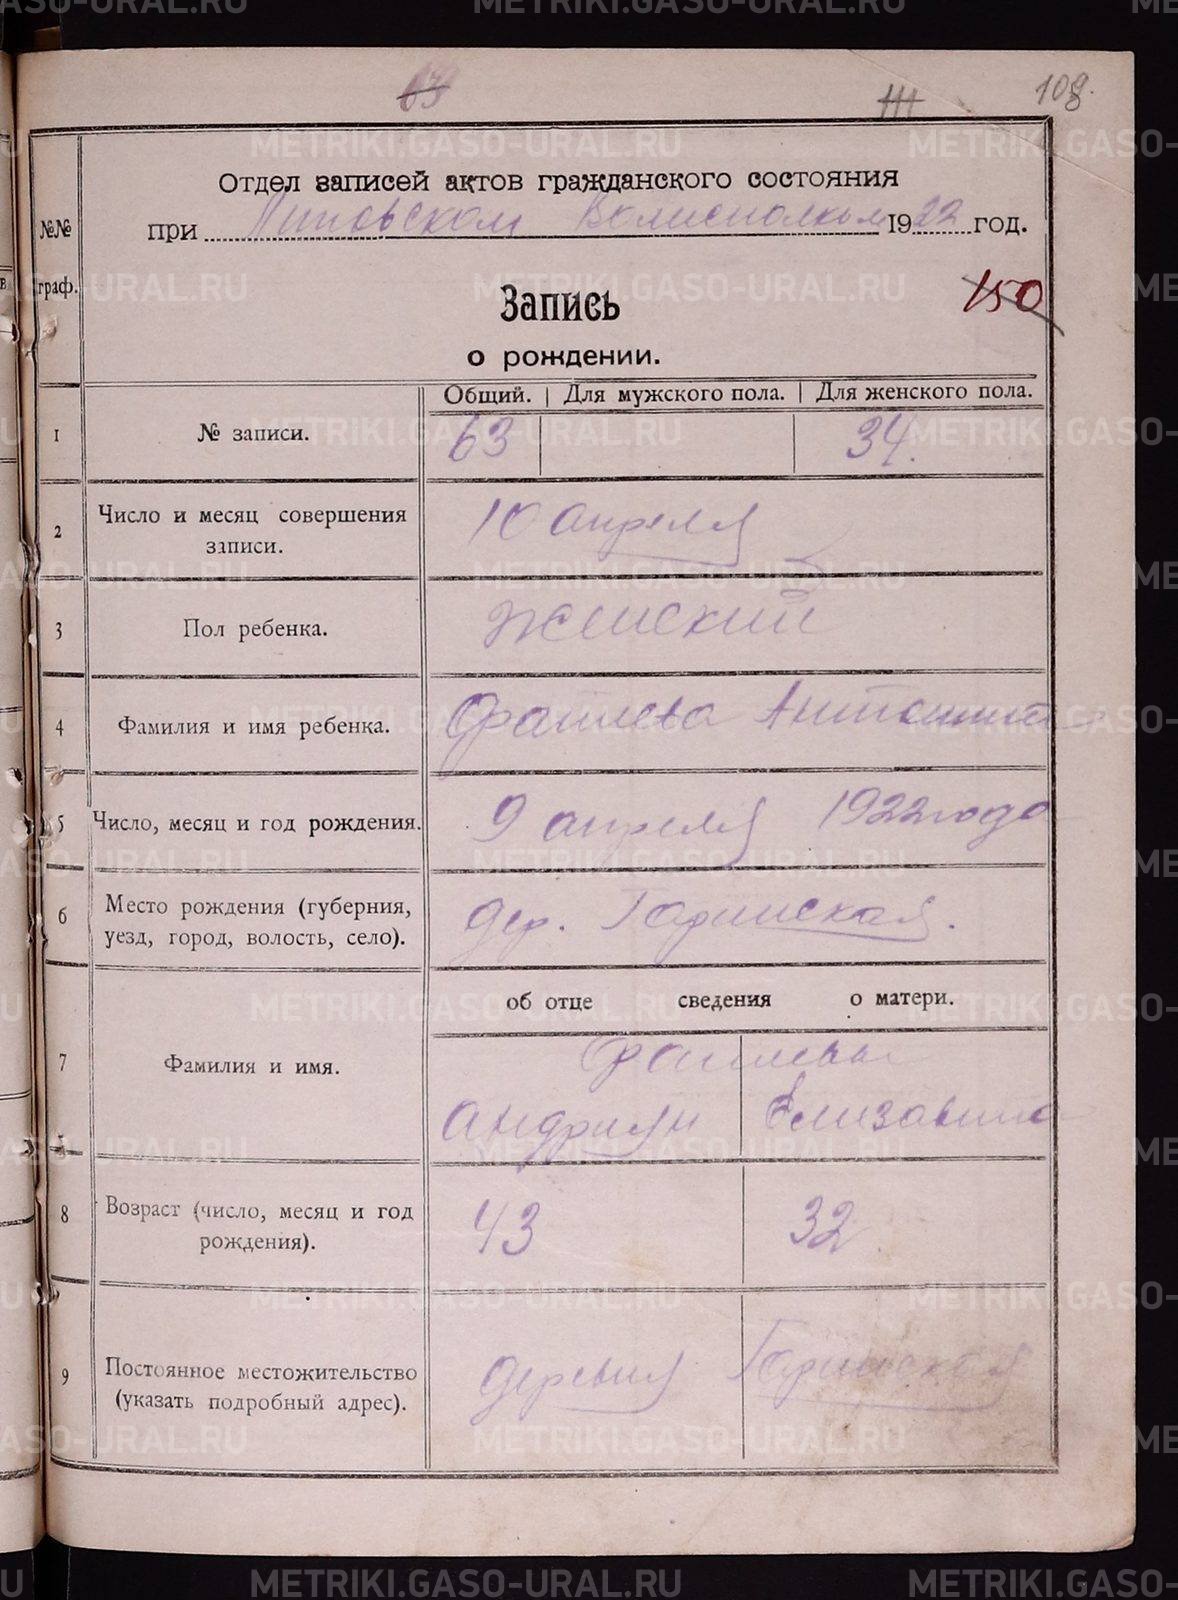 63
111
108.
Отдел записей актов гражданского состояния
при Липовском Волисполкоме 1922 год.
№№
граф.
150
Запись
о рождении.
Общий. | Для мужского пола. | Для женского пола.
1 № записи. 63 34.
2 Число и месяц совершения
записи.
10 апреля
3 Пол ребенка. Женский
4 Фамилия и имя ребенка.
5 Число, месяц и год рождения. 9 апреля 1922 года
6 Место рождения (губерния,
уезд, город, волость, село).
дер.
об отце сведения о матери.
7 Фамилия и имя.
Андриян Елизавета
8 Возраст (число, месяц и год
рождения).
43 32
9 Постоянное местожительство
(указать подробный адрес).
деревня
METRIKI.GASO-URAL.RU